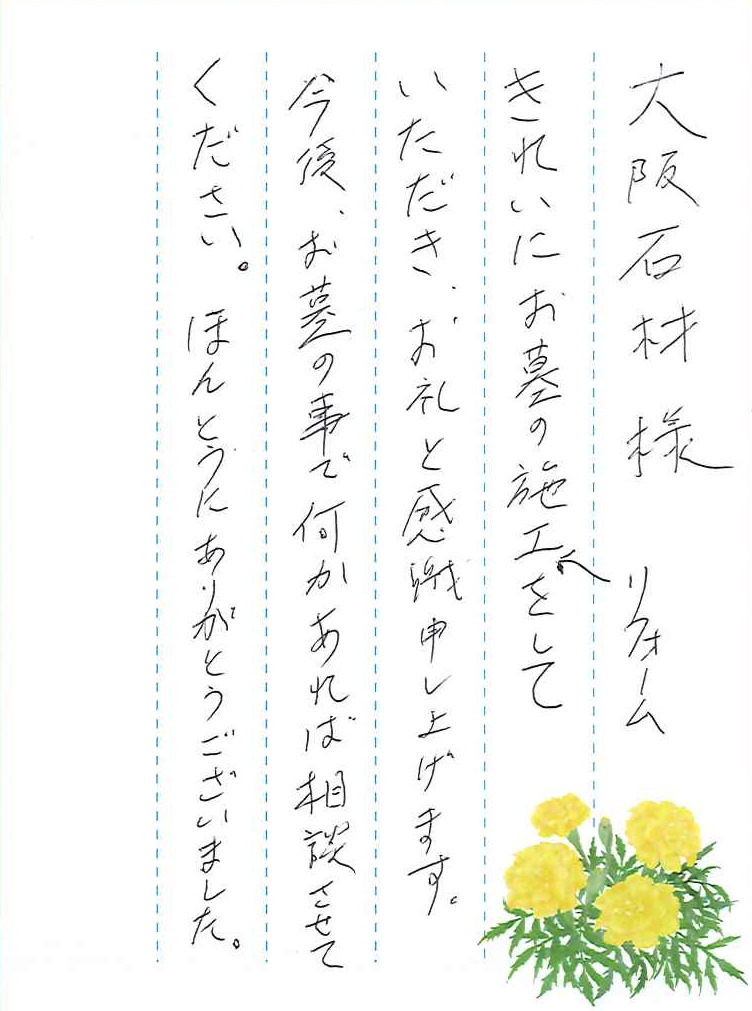 大阪石材様
リフォーム
きれいにお墓の施工をして
いただき、お礼と感織申し上げます。
今後、お墓の事で何かあれば相談させて
ください。ほんとうにありがとうございました。